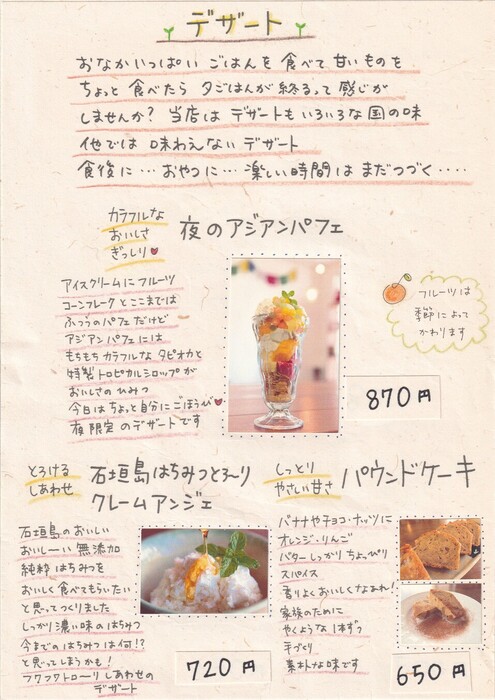 デザート
おなかいっぱい ごはんを 食べて 甘いものを
ちょっと 食べたら 夕ごはんが 終るって 感じが
しませんか? 当店は デザートも いろいろな国の味
他では 味わえない デザート
食後に… おやつに… 楽しい時間は まだつづく・・・・
カラフルな
おいしさ
ぎっしり
夜のアジアンパフェ
アイスクリームに フルーツ
コーンフレークと ここまでは
ふつうのパフェだけど
アジアンパフェには
もちもち カラフルな タピオカと
特製トロピカルシロップが
おいしさの ひみつ
今日は ちょっと 自分に ごほうび
夜限定 のデザートです
フルーツは
季節によって
かわります
870円
とろける
しあわせ
石垣島はちみつとろ〜り
クレームアンジェ
石垣島の おいしい
おいしーい 無添加
純粋 はちみつを
おいしく 食べてもらいたい
と思って つくりました
しっかり 濃い味の はちみつ
今までの はちみつは 何!?
と 思ってしまうかも!
フワフワトロ〜リ しあわせの
デザート
720円
しっとり
やさしい甘さ
パウンドケーキ
バナナや チョコ・ナッツに
オレンジ・りんご
バター しっかり ちょっぴり
スパイス
香りよく おいしくなあれ!
家族のために
やくような 1本ずつ
手づくり
素朴な味です
650円